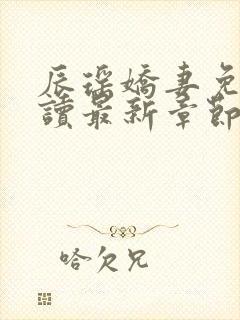 辰瑤嬌妻免
讀最新章節
哈欠兄